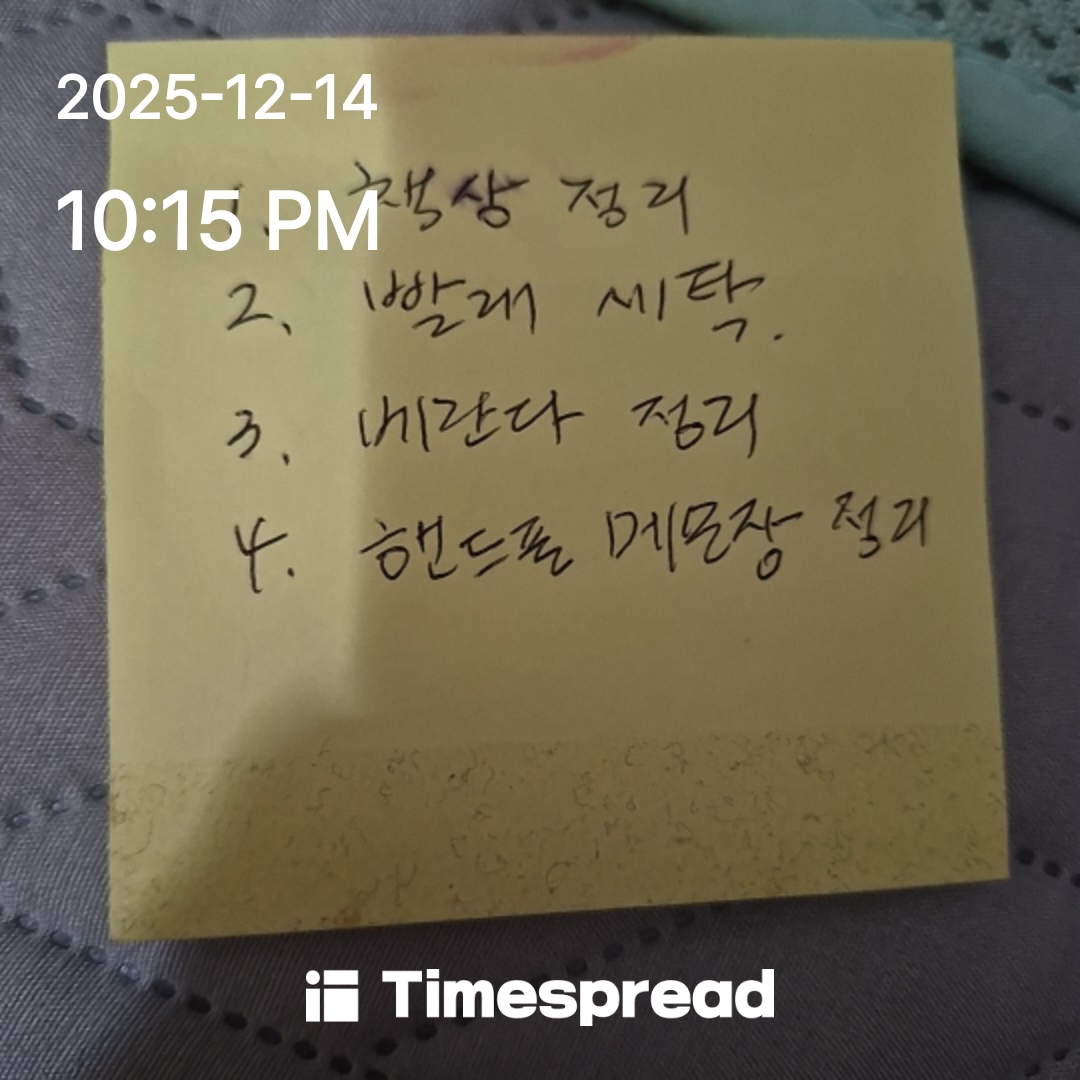 2025-12-14
10:15 PM
1. 책상 정리
2. 빨래 세탁.
3. 베란다 정리
4. 핸드폰 메모장 정리
Timespread